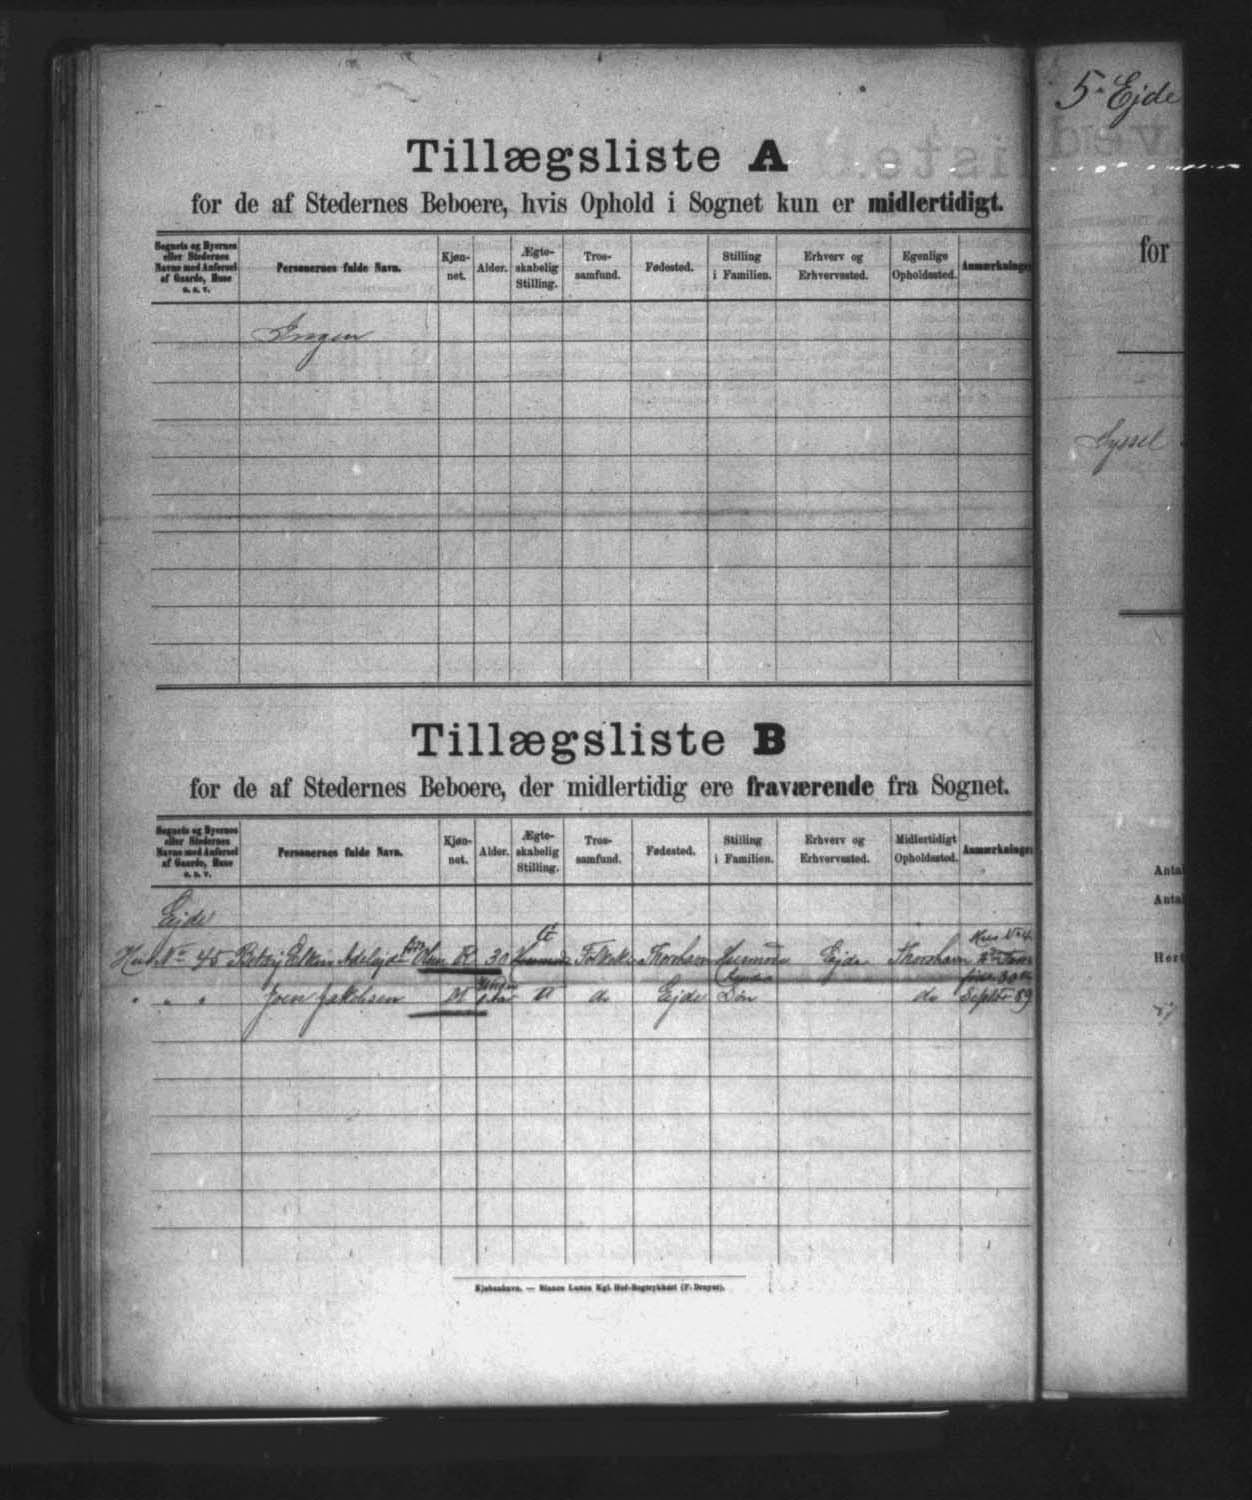 Tillægsliste A
for de af Stedernes Beboere, hvis Ophold i Sognet kun er midlertidigt.
Sognets og Byernes eller Stedernes Navne med Anførsel af Gaarde, Huse o. s. v.
Personernes fulde Navn.
Kjøn-net.
Alder.
Ægte-skabelig Stilling.
Tros-samfund.
Fødested.
Stilling i Familien.
Erhverv og Erhvervssted.
Egenlige Opholdssted.
Anmærkninger
Ingen
Tillægsliste B
for de af Stedernes Beboere, der midlertidig ere fraværende fra Sognet.
Sognets og Byernes eller Stedernes Navne med Anførsel af Gaarde, Huse o. s. v.
Personernes fulde Navn.
Kjøn-net.
Alder.
Ægte-skabelig Stilling.
Tros-samfund.
Fødested.
Stilling i Familien.
Erhverv og Erhvervssted.
Midlertidigt Opholdssted.
Anmærkninger
Ejde
Hus No 45 Olsen K 30 Folkek. Thorshavn Husmoder Ejde Thorshavn
" " " Joen Jakobsen M U do Ejde Søn do Septbr 89
Kjøbenhavn. — Bianco Lunos Kgl. Hof-Bogtrykkeri (F. Dreyer).
5. Ejde
for
Syssel
Anta
Anta
Hert